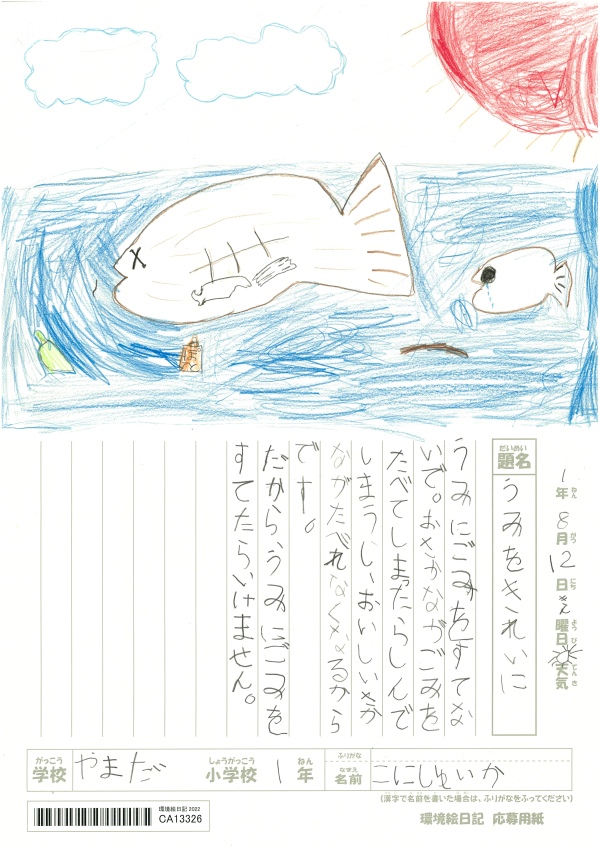 1年 8月 12日 きん曜日 天気
ねん がつ にち ようび てんき
だいめい
題名 うみをきれいに
うみにごみをすてな
いで。おさかながごみを
たべてしまったらしんで
しまうし、おいしいさか
ながたべれなくなるから
です。
だから、うみにごみを
すてたらいけません。
がっこう しょうがっこう ねん ふりがな なまえ
学校 やまだ 小学校 1年 名前 こにしゆいか
(漢字で名前を書いた場合は、ふりがなをふってください)
環境絵日記 2022
CA13326
環境絵日記 応募用紙